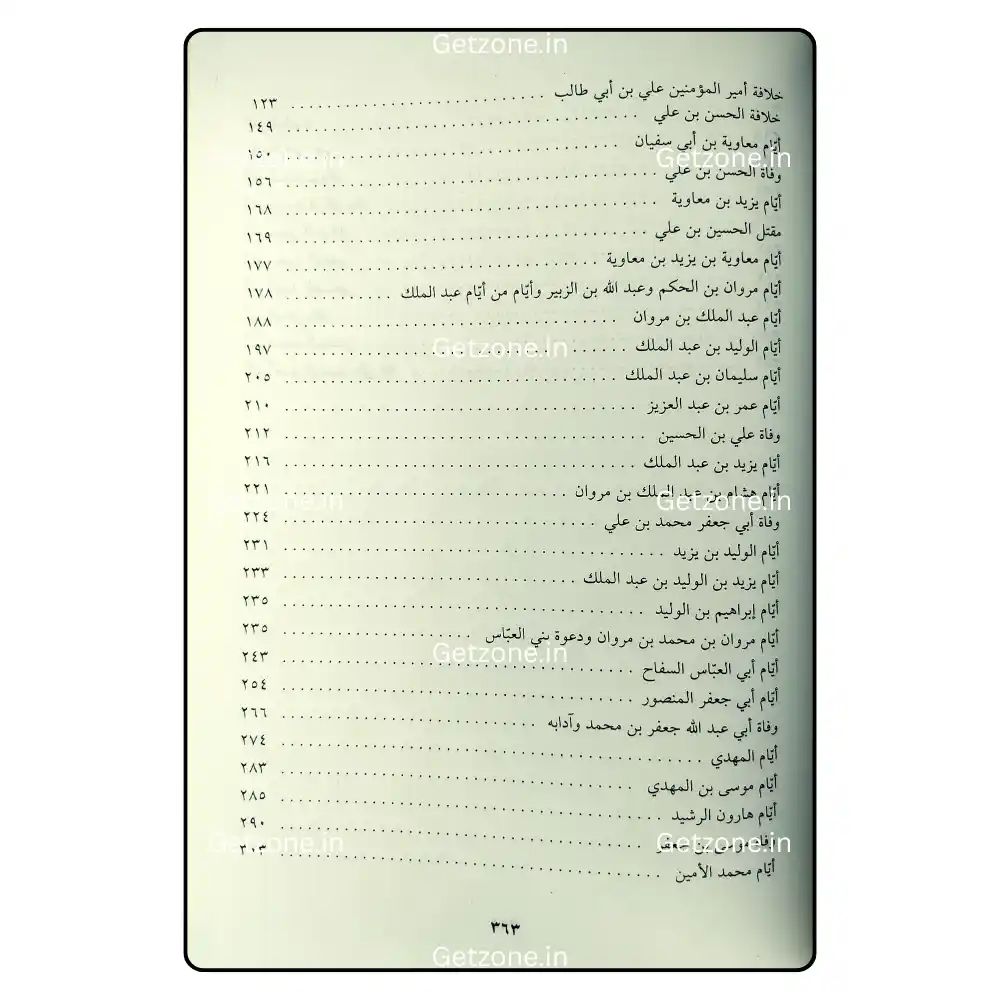 Getzone.in
خلافة أمير المؤمنين علي بن أبي طالب ١٢٣
خلافة الحسن بن علي ١٤٩
أيّام معاوية بن أبي سفيان ١٥٠
Getzone.in Getzone.in
وفاة الحسن بن علي ١٥٦
أيّام يزيد بن معاوية ١٦٨
مقتل الحسين بن علي ١٦٩
أيّام معاوية بن يزيد بن معاوية ١٧٧
أيّام مروان بن الحكم وعبد الله بن الزبير وأيّام من أيّام عبد الملك ١٧٨
أيّام عبد الملك بن مروان ١٨٨
أيّام الوليد بن عبد الملك ١٩٧
Getzone.in
أيّام سليمان بن عبد الملك ٢٠٥
أيّام عمر بن عبد العزيز ٢١٠
وفاة علي بن الحسين ٢١٢
أيّام يزيد بن عبد الملك ٢١٦
أيّام هشام بن عبد الملك بن مروان ٢٢١
Getzone.in Getzone.in
وفاة أبي جعفر محمد بن علي ٢٢٤
أيّام الوليد بن يزيد ٢٣١
أيّام يزيد بن الوليد بن عبد الملك ٢٣٣
أيّام إبراهيم بن الوليد ٢٣٥
أيّام مروان بن محمد بن مروان ودعوة بني العبّاس ٢٣٥
Getzone.in
أيّام أبي العبّاس السفاح ٢٤٣
أيّام أبي جعفر المنصور ٢٥٤
وفاة أبي عبد الله جعفر بن محمد وآدابه ٢٦٦
أيّام المهدي ٢٧٤
أيّام موسى بن المهدي ٢٨٣
أيّام هارون الرشيد ٢٨٥
وفاة موسى بن جعفر ٢٩٠
Getzone.in Getzone.in
أيّام محمد الأمين ٣٠٣
٣٦٣
Getzone.in